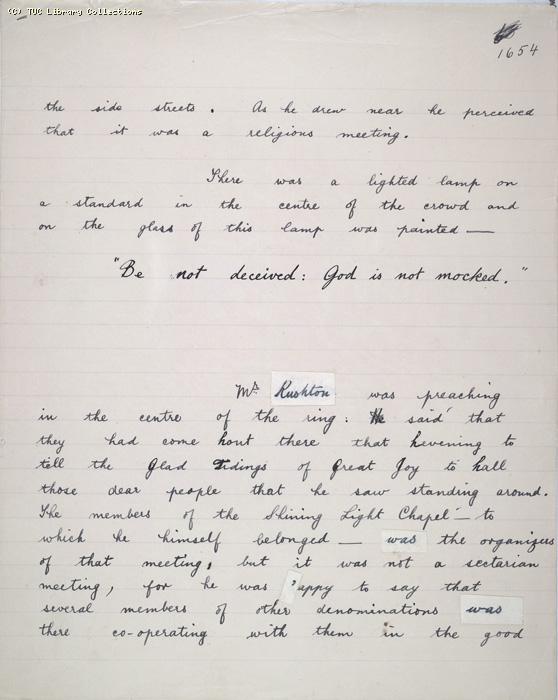 (C) TUC Library Collections
1654
the side streets. As he drew near he perceived
that it was a religious meeting.
There was a lighted lamp on
a standard in the centre of the crowd and
on the glass of this lamp was painted —
"Be not deceived: God is not mocked."
Mr. Rushton was preaching
in the centre of the ring: He said that
they had come hout there that hevening to
tell the Glad Tidings of Great Joy to hall
those dear people that he saw standing around.
The members of the Shining Light Chapel – to
which he himself belonged – was the organizers
of that meeting, but it was not a sectarian
meeting, for he was 'appy to say that
several members of other denominations was
there co-operating with them in the good